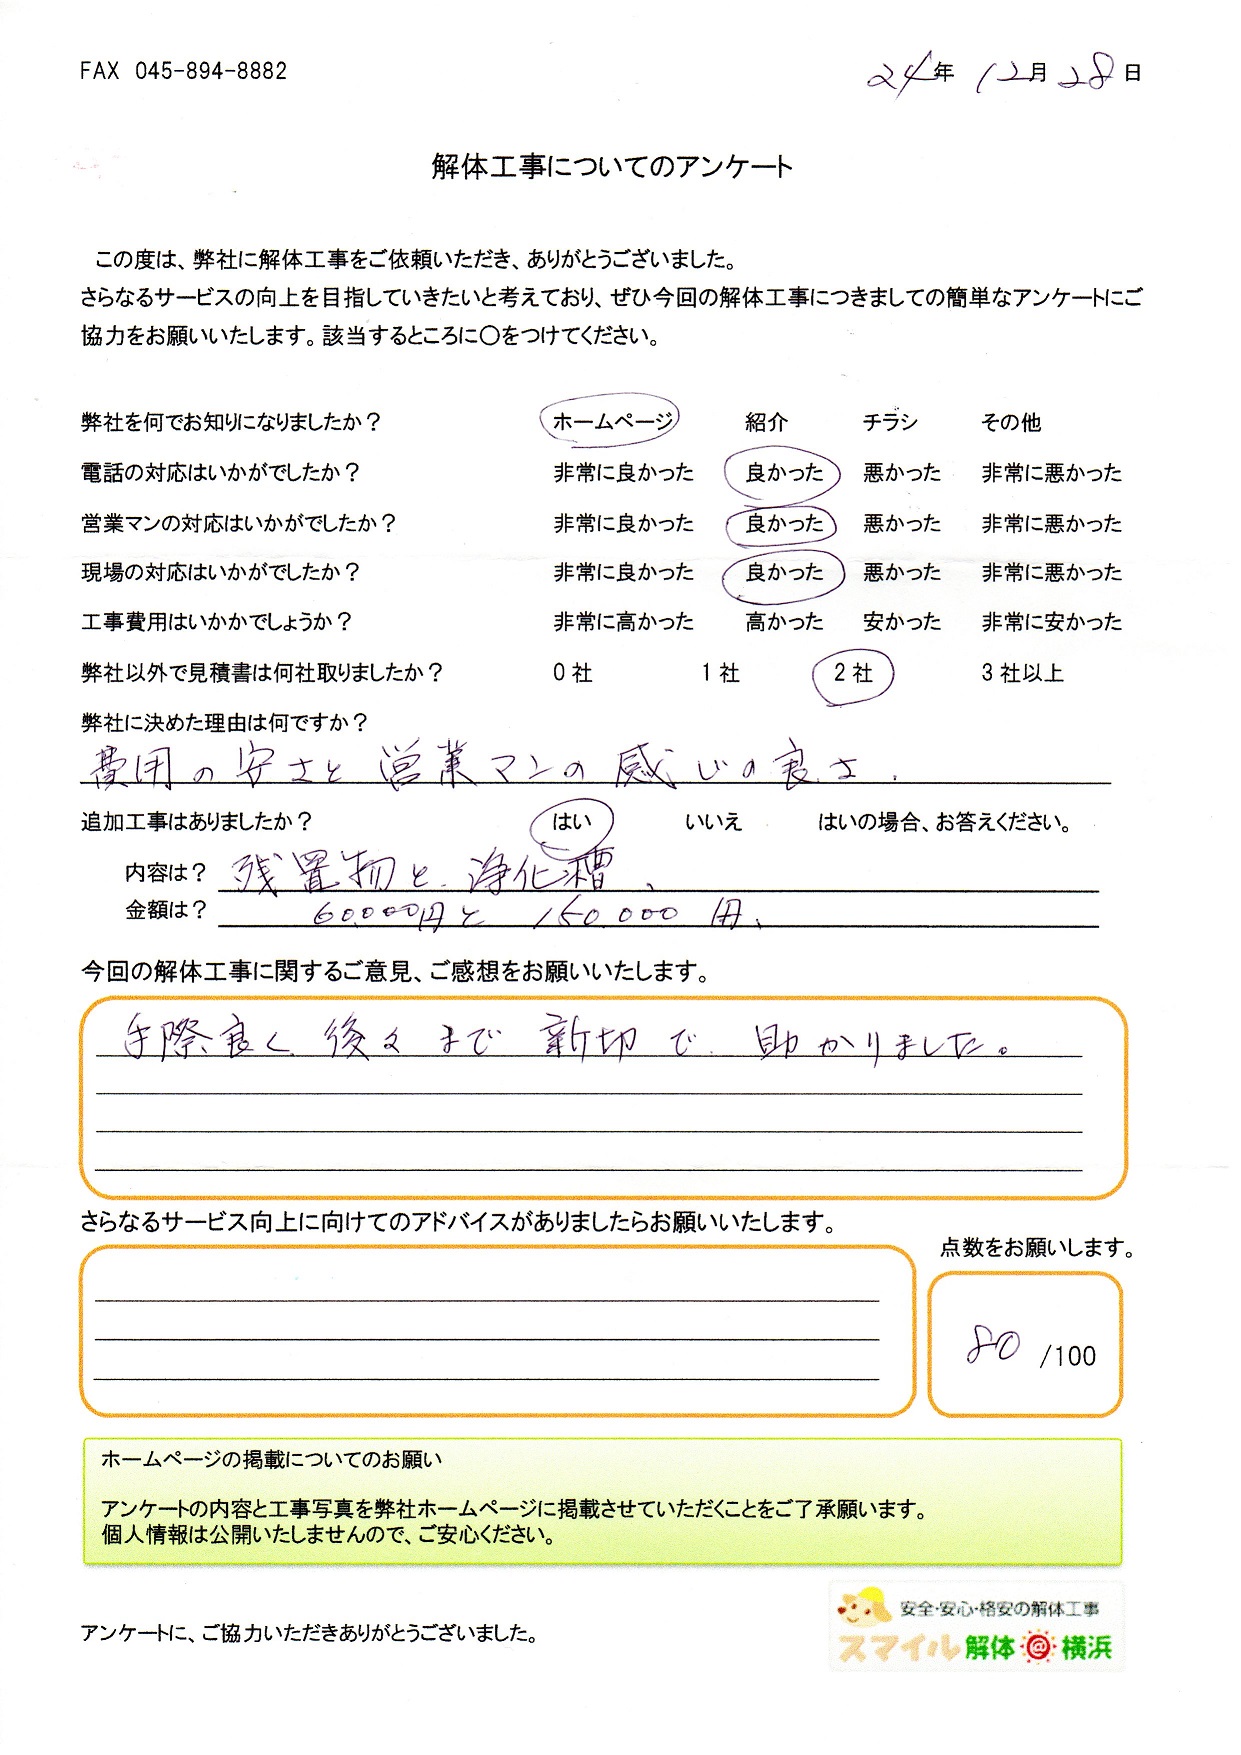 FAX 045-894-8882
24年 12月 28日
解体工事についてのアンケート
この度は、弊社に解体工事をご依頼いただき、ありがとうございました。
さらなるサービスの向上を目指していきたいと考えており、ぜひ今回の解体工事につきましての簡単なアンケートにご
協力をお願いいたします。該当するところに○をつけてください。
弊社を何でお知りになりましたか？ ホームページ 紹介 チラシ その他
電話の対応はいかがでしたか？ 非常に良かった 良かった 悪かった 非常に悪かった
営業マンの対応はいかがでしたか？ 非常に良かった 良かった 悪かった 非常に悪かった
現場の対応はいかがでしたか？ 非常に良かった 良かった 悪かった 非常に悪かった
工事費用はいかかでしょうか？ 非常に高かった 高かった 安かった 非常に安かった
弊社以外で見積書は何社取りましたか？ 0社 1社 2社 3社以上
弊社に決めた理由は何ですか？
費用の安さと営業マンの感じの良さ.
追加工事はありましたか？ はい いいえ はいの場合、お答えください。
内容は？ 残置物と浄化槽、
金額は？ 60.000円と 150.000円、
今回の解体工事に関するご意見、ご感想をお願いいたします。
手際良く後々まで新切で助かりました。
さらなるサービス向上に向けてのアドバイスがありましたらお願いいたします。
点数をお願いします。
80 /100
ホームページの掲載についてのお願い
アンケートの内容と工事写真を弊社ホームページに掲載させていただくことをご了承願います。
個人情報は公開いたしませんので、ご安心ください。
アンケートに、ご協力いただきありがとうございました。
安全・安心・格安の解体工事
スマイル解体@横浜